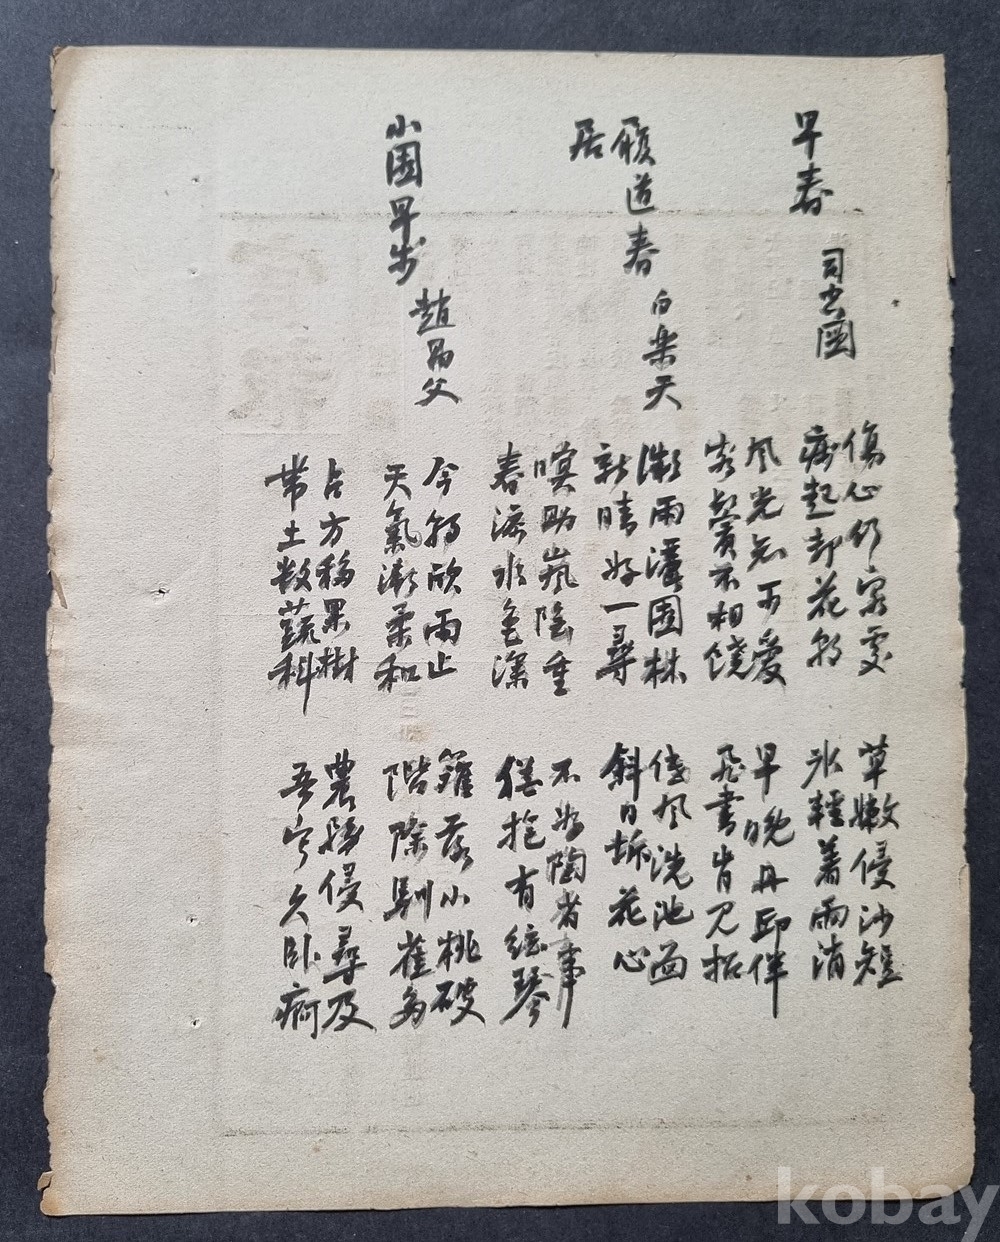 早春
司空圖
傷心仍客處
草嫩侵沙短
病起却花朝
冰輕着雨消
風光知可愛
早晚丹邱伴
容鬢不相饒
飛書肯見招
履道春
居
白樂天
微雨灑園林
低風洗池面
新晴好一尋
斜日拆花心
暝助嵐陰重
不如陶省事
春添水色深
猶抱有絃琴
小園早步
趙昌父
今朝欣雨止
籬落小桃破
天氣漸柔和
階除馴雀多
占方移果樹
農務侵尋及
帶土數蔬科
吾寧久臥痾
kobay